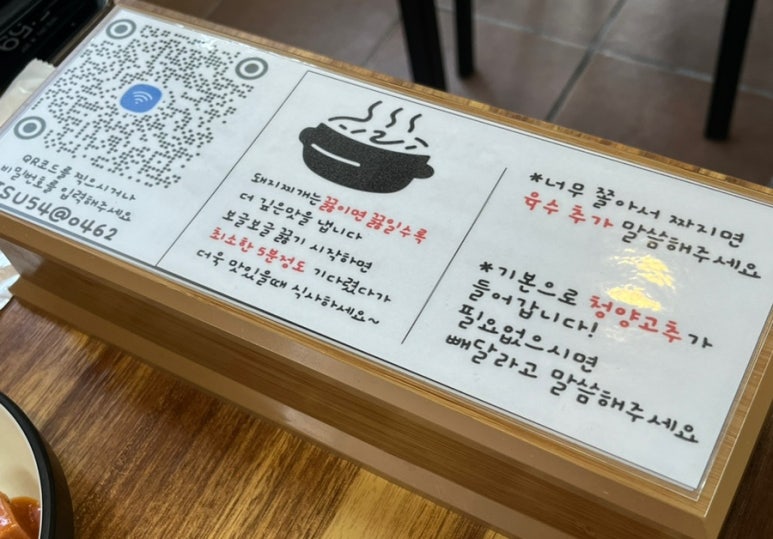 QR코드를 찍으시거나
비밀번호를 입력해주세요
SU54@0462
돼지찌개는 끓이면 끓일수록
더 깊은맛을 냅니다
보글보글 끓기 시작하면
최소한 5분정도 기다렸다가
더욱 맛있을때 식사하세요~
*너무 쫄아서 짜지면
육수 추가 말씀해주세요
*기본으로 청양고추가
들어갑니다!
필요없으시면
빼달라고 말씀해주세요